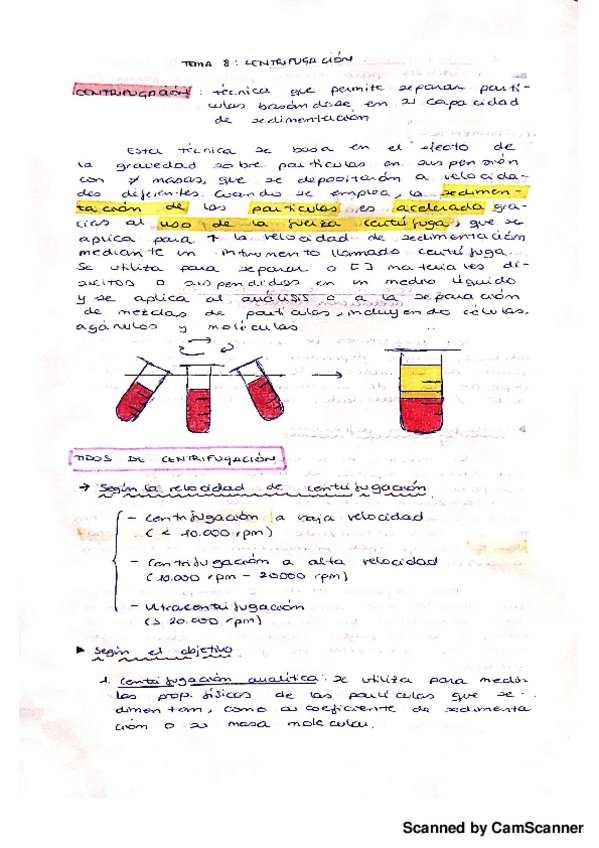 TEMA 8: CENTRIFUGACIÓN
CENTRIFUGACIÓN: técnica que permite separar partí-
culas basándose en su capacidad
de sedimentación
Esta técnica se basa en el efecto de
la gravedad sobre partículas en suspensión
con ≠ masas, que se depositarán a velocida-
des diferentes. Cuando se emplea, la sedimen-
tación de las partículas es acelerada gra-
cias al uso de la fuerza centrífuga, que se
aplica para ↑ la velocidad de sedimentación
mediante un instrumento llamado centrífuga.
Se utiliza para separar o [ ] materiales di-
sueltos o suspendidos en un medio líquido
y se aplica al análisis o a la separación
de mezclas de partículas, incluyendo células,
orgánulos y moléculas.
TIPOS DE CENTRIFUGACIÓN
→ Según la velocidad de centrifugación
- Centrifugación a baja velocidad
( < 10.000 rpm)
- Centrifugación a alta velocidad
(10.000 rpm - 20000 rpm)
- Ultracentrifugación
(≥ 20.000 rpm)
▶ Según el objetivo
1. Centrifugación analítica: se utiliza para medir
las prop. físicas de las partículas que se-
dimentan, como su coeficiente de sedimenta
ción o su masa molecular.
Scanned by CamScanner